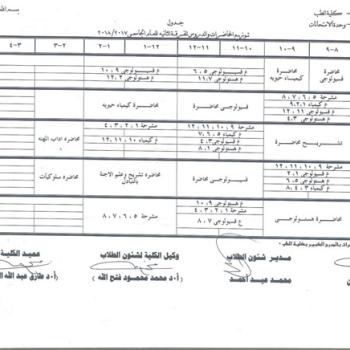 بسم الله
- كلية الطب
- وحدة الامتحانات
جدول
توزيع المحاضرات والدروس للفرقة الثانية للعام الجامعي ٢٠١٧/٢٠١٨
٨-٩ ٩-١٠ ١٠-١١ ١١-١٢ ١٢-١ ١-٢ ٢-٣ ٣-٤
محاضرة فسيولوجي
محاضرة كيمياء حيوية
ع فسيولوجي ٦،٥
ع هستولوجي ١١،٧
ع فسيولوجي ١٠،٩
ع هستولوجي ١٢،٢
مشرحة ٨،٧،٦،٥
ع كيمياء ٩،٢،١
ع فسيولوجي ١٢،١١
ع هستولوجي ٤،٣
فسيولوجي محاضرة
محاضرة كيمياء حيوية
تشريح محاضرة
مشرحة ١٢،١١،١٠،٩
ع كيمياء ٧،٦،٥
ع فسيولوجي ٤،٣
ع هستولوجي ٨،١
مشرحة ٤،٣،٢،١
ع كيمياء ١٢،١١،١٠
محاضرة اداب المهنة
مشرحة ١٢،١١،١٠،٩
ع هستولوجي ٦،٥
ع فسيولوجي ٢،١
ع كيمياء ٨،٤،٣
فسيولوجي محاضرة
محاضرة تشريح وعلم الاجنة بالتبادل
محاضرة سلوكيات
محاضرة هستولوجي
ع هستولوجي ١٠،٩
مشرحة ٤،٣،٢،١
ع فسيولوجي ٨،٧
مشرحة ٨،٧،٦،٥
مدير شئون الطلاب
محمد عبد احمد
وكيل الكلية لشئون الطلاب
(أ.د محمد محمود فتح الله)
عميد الكلية
(أ.د طارق عبد الله